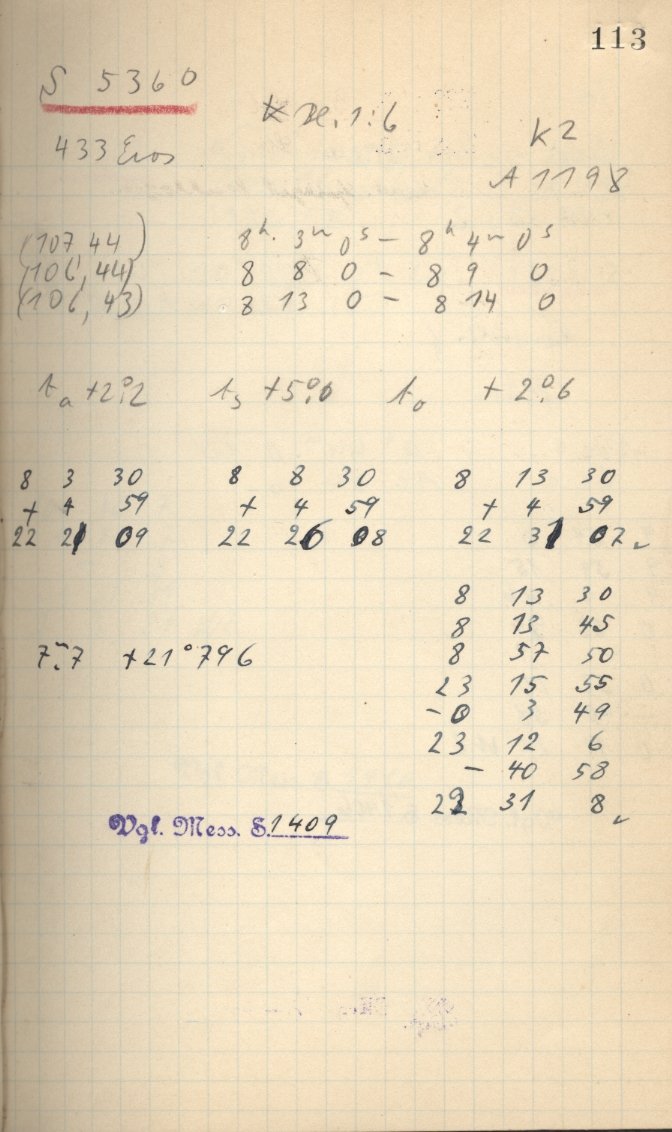 113
S 5360
1:6
433 Eros
K2
A 1198
(107,44) 8ʰ 3ᵐ 0ˢ – 8ʰ 4ᵐ 0ˢ
(106,44) 8 8 0 – 8 9 0
(106,43) 8 13 0 – 8 14 0
tₐ +2°.2 tₛ +5°.0 tₒ +2°.6
8 3 30 8 8 30 8 13 30
+ 4 59 + 4 59 + 4 59
22 21 09 22 26 08 22 31 07
8 13 30
8 13 45
7ᵐ.7 +21°796 8 57 50
23 15 55
-0 3 49
23 12 6
- 40 58
22 31 8
Vgl. Mess. S. 1409